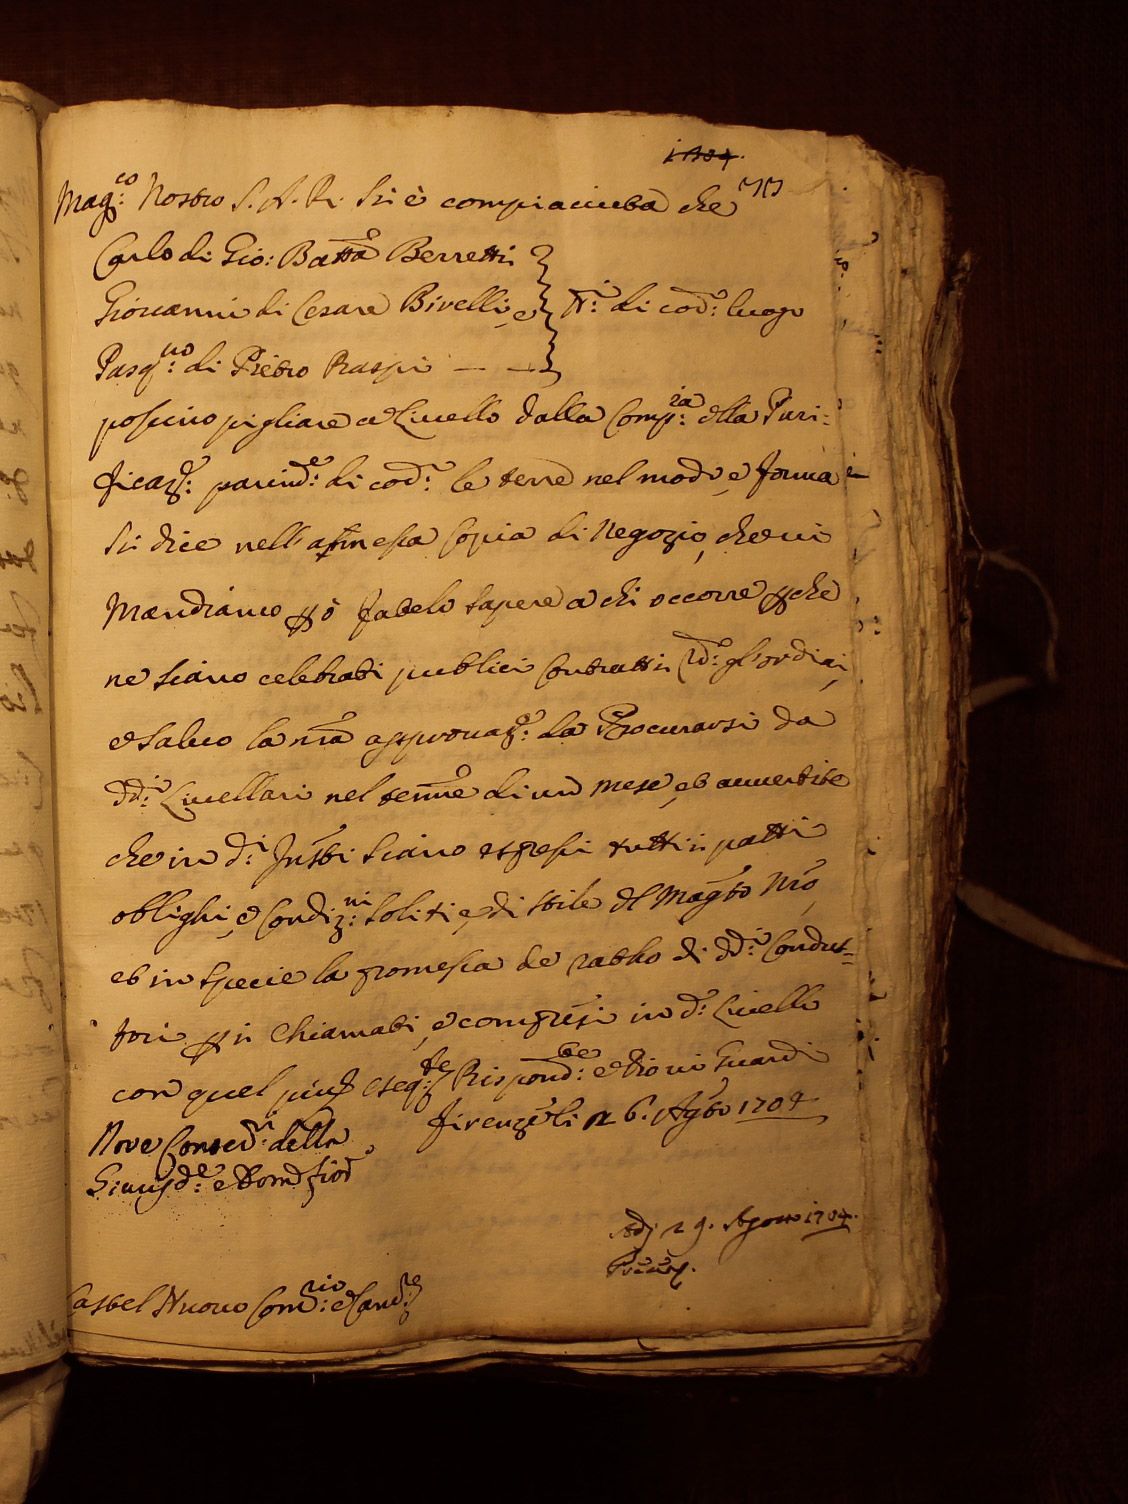 1704.
Mag:co Nostro S. A. R. si è compiaciuta che
Carlo di Gio: Batta Berretti
Giovanni di Cesare Bivelli, e
di cod: luogo
Pasq:no di Pietro Raspi
possino pigliare a Livello dalla Comp:ia della Puri-
ficaz:e parimte: di cod: le terre nel modo, e forma
si dice nell'annessa Copia di Negozio, che vi
Mandiamo però fatelo sapere a chi occorre perche
ne siano celebrati publici Contratti gl'ordini,
e salvo la nra approvaz:e da Procurarsi da
dd:i Livellari nel termne di un mese, et avvertite
che in d:i Insti siano espressi tutti i patti
oblighi, e Condiz:ni soliti, e di stile del Magto Nro,
et in specie la promessa de rato di dd:i Condut=
tori per i Chiamati, e compresi in d:o Livello
con quel più eseq:te Rispond:te e Dio vi Guardi
Firenze li 26. Agto 1704
Nove Conser:i della
Giurisd:e e Dom Fior
Adi 29. Agosto 1704.
Castel Nuovo Com:rio e Canc:re